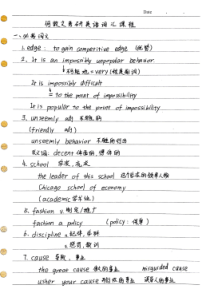 Date
考研英语词汇课程
一、必考词义
1. edge: to gain competitive edge (优势)
2. It is an impossibly unpopular behavior
不可能地 = very (程度副词)
It is impossibly difficult
= to the point of impossibility
It is popular to the point of impossibility
3. unseemly adj 不得体的
(friendly adj)
unseemly behavior 不得体的行为
反义词: decent 体面的, 得体的
4. school 学派, 流派
the leader of this school 这个学派的领导人物
Chicago school of economy
(academic 学术的)
5. fashion v. 制定/推广
fashion a policy (policy: 政策)
6. discipline n. 纪律, 学科
v. 惩罚, 教训
7. cause 事业 n.
the great cause 伟大的事业 misguided cause
usher your cause